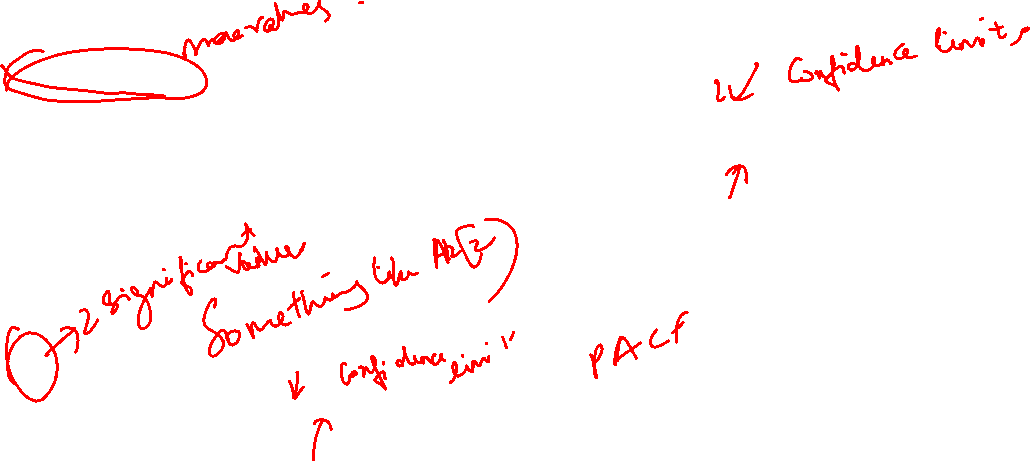 more values
Confidence limits
2 significant
values
Something like AR(2)
Confidence limit
PACF